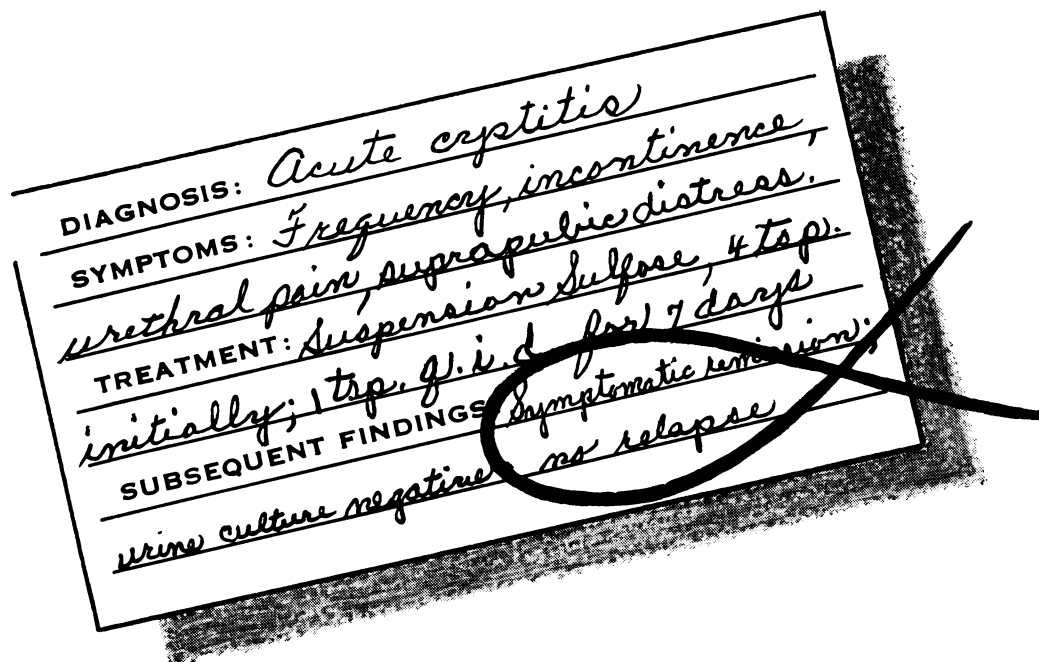 DIAGNOSIS: Acute cystitis
SYMPTOMS: Frequency, incontinence,
urethral pain, suprapubic distress.
TREATMENT: Suspension Sulfose, 4 tsp.
initially; 1 tsp. q.i.d. for 7 days
SUBSEQUENT FINDINGS: Symptomatic remission;
urine culture negative no relapse